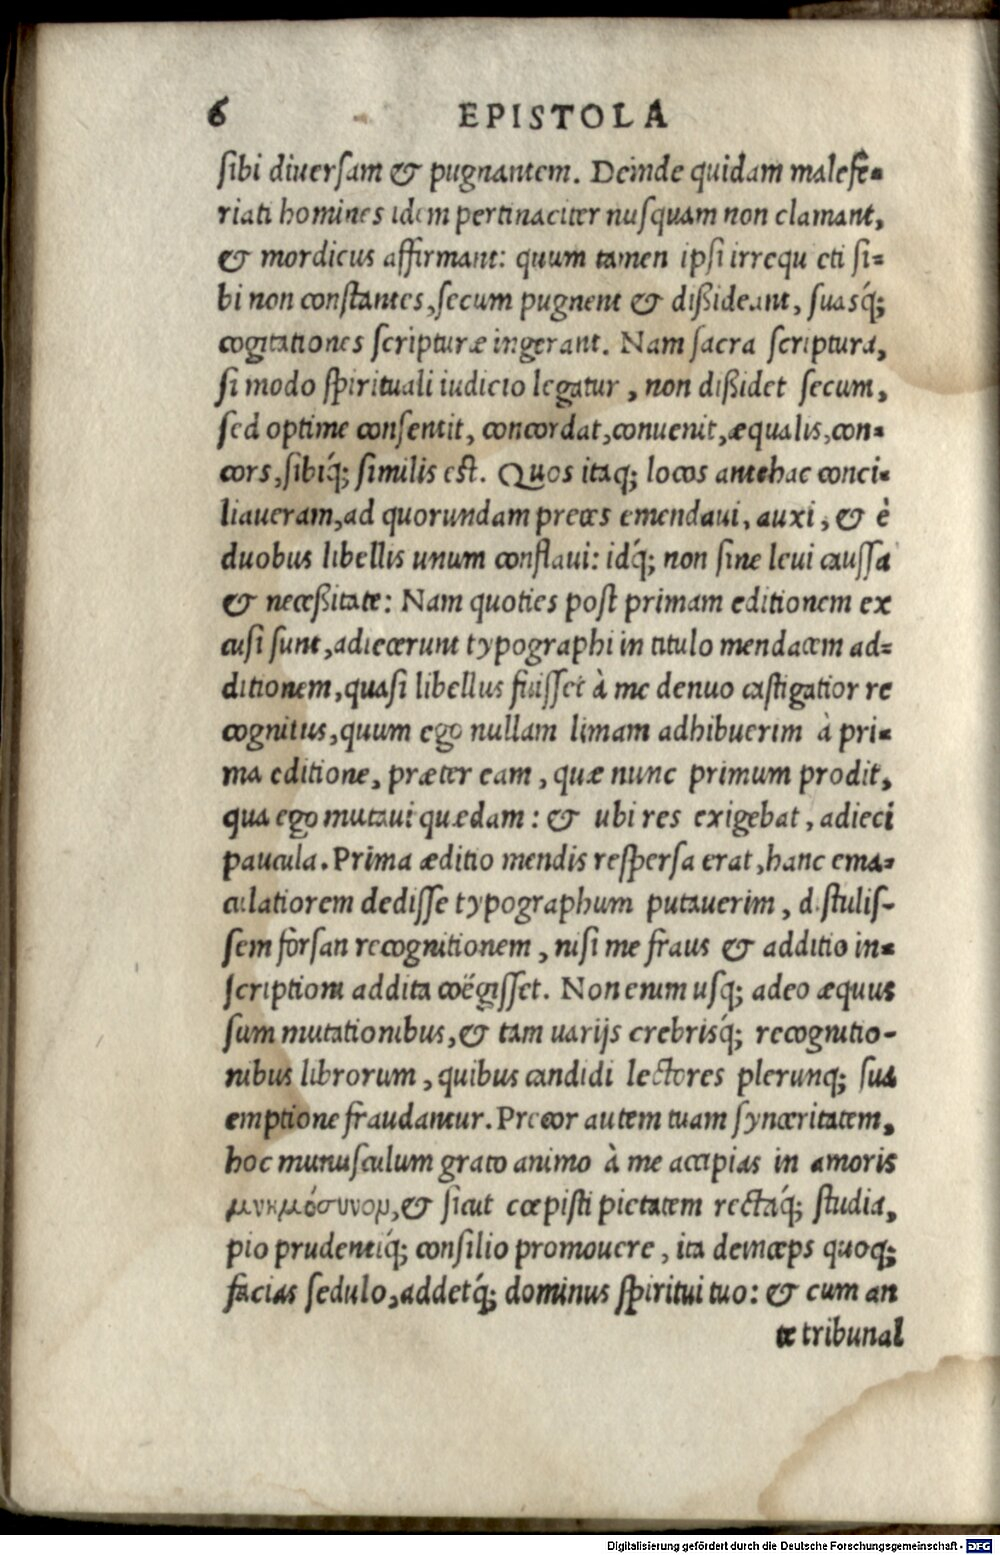 6 EPISTOLA
sibi diuersam & pugnantem. Deinde quidam malefe-
riati homines idem pertinaciter nusquam non clamant,
& mordicus affirmant: quum tamen ipsi irrequieti si-
bi non constantes, secum pugnent & dißideant, suasq́;
cogitationes scripturæ ingerant. Nam sacra scriptura,
si modo spirituali iudicio legatur, non dißidet secum,
sed optime consentit, concordat, conuenit, æqualis, con-
cors, sibiq́; similis est. Quos itaq; locos antehac conci-
liaueram, ad quorundam preces emendaui, auxi, & è
duobus libellis unum conflaui: idq́; non sine leui caussa
& neceßitate: Nam quoties post primam editionem ex
cusi sunt, adiecerunt typographi in titulo mendacem ad-
ditionem, quasi libellus fuisset à me denuo castigatior re
cognitus, quum ego nullam limam adhibuerim à pri-
ma editione, præter eam, quæ nunc primum prodit,
qua ego mutaui quædam: & ubi res exigebat, adieci
paucula. Prima æditio mendis respersa erat, hanc ema-
culatiorem dedisse typographum putauerim, distulis-
sem forsan recognitionem, nisi me fraus & additio in-
scriptioni addita coëgisset. Non enim usq; adeo æquus
sum mutationibus, & tam uarijs crebrisq́; recognitio-
nibus librorum, quibus candidi lectores plerunq; sua
emptione fraudantur. Precor autem tuam synceritatem,
hoc munusculum grato animo à me accipias in amoris
μνημόσυνον, & sicut cœpisti pietatem rectaq́; studia,
pio prudentiq́; consilio promouere, ita deinceps quoq;
facias sedulo, addetq́; dominus spiritui tuo: & cum an
te tribunal
Digitalisierung gefördert durch die Deutsche Forschungsgemeinschaft - DFG